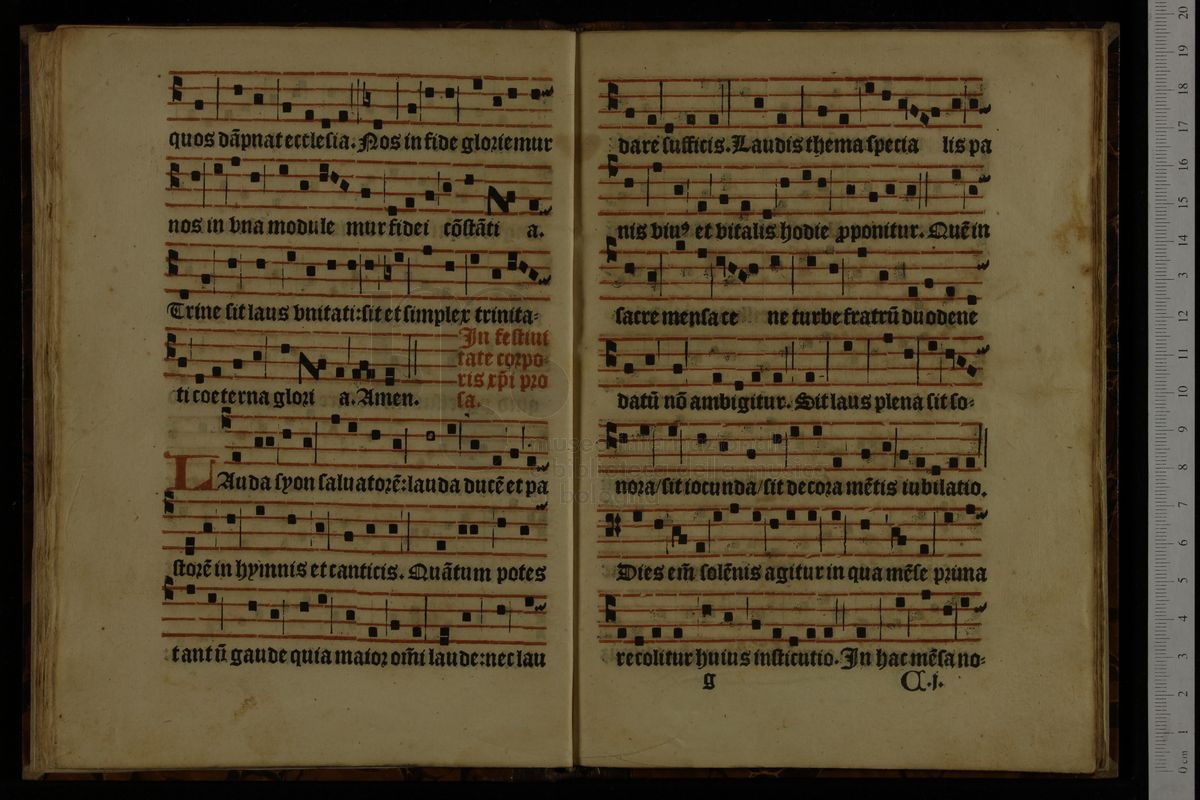 quos dāpnat ecclesia. Nos in fide gloriemur
nos in vna module mur fidei cōstāti a.
Trine sit laus vnitati: sit et simplex trinita-
In festiui
tate corpo
ris xp̄i pro
sa.
ti coeterna glori a. Amen.
LAuda syon saluatorē: lauda ducē et pa
storē in hymnis et canticis. Quātum potes
tantū gaude quia maior om̄i laude: nec lau
dare sufficis. Laudis thema specia lis pa
nis viuꝰ et vitalis hodie ꝓponitur. Quē in
sacre mensa ce ne turbe fratrū duodene
datū nō ambigitur. Sit laus plena sit so-
nora/sit iocunda/sit decora mētis iubilatio.
Dies em̄ solēnis agitur in qua mēse prima
recolitur huius institutio. In hac mēsa no-
g
museo internazionale
biblioteca della musica
bologna
0 cm 1 2 3 4 5 6 7 8 9 10 11 12 13 14 15 16 17 18 19 20